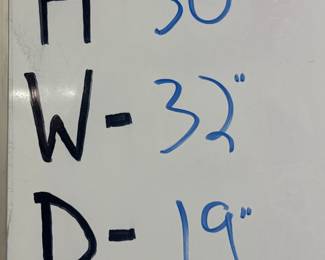 H 30
W- 32"
D- 19"